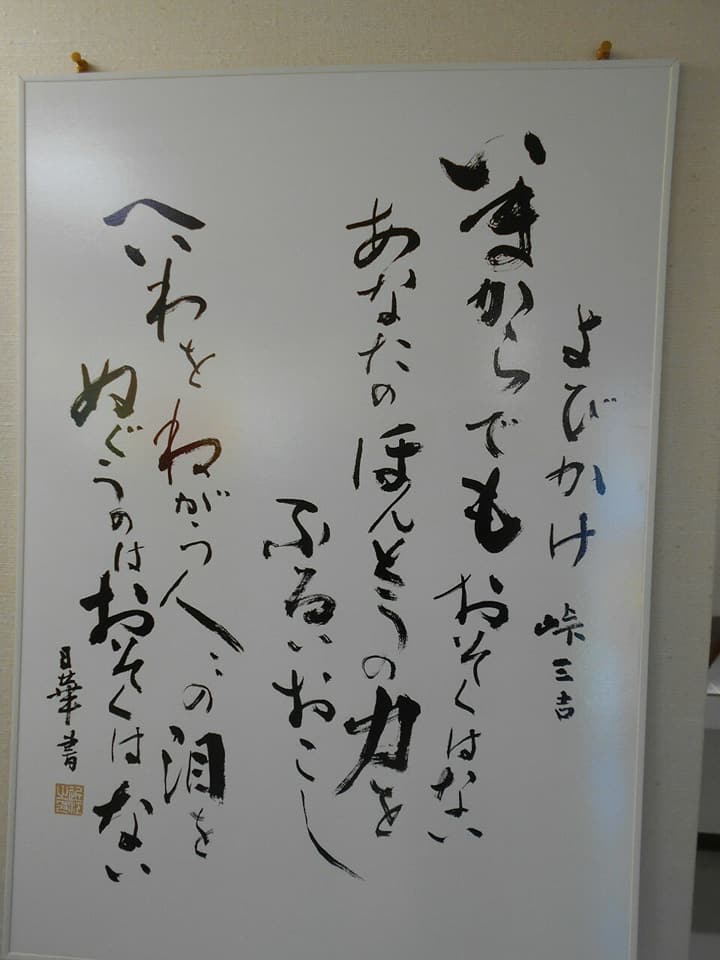 よびかけ 峠三吉
いまからでもおそくはない
あなたのほんとうの力を
ふるいおこし
へいわをねがう人々の泪を
ぬぐうのはおそくはない
日華書